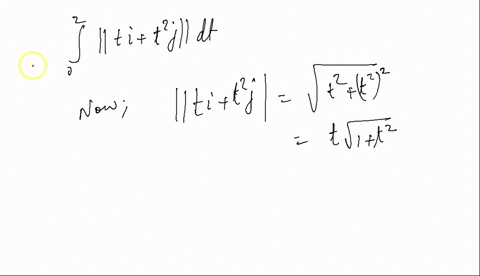 ∫₀² ||ti + t²j|| dt
Now; ||ti + t²ĵ| = √(t² + (t²)²)
= t√(1 + t²)